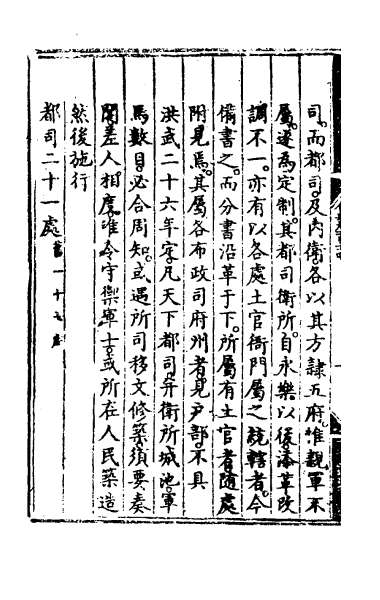 司。而都司。及内衛各以其方隷五府。惟親軍不
屬。遂為定制。其都司衛所。自永樂以後。添革改
調不一。亦有以各處土官衙門屬之統轄者。今
備書之。而分書沿革于下。所屬有土官者。隨處
附見焉。其屬各布政司府州者。見户部。不具
洪武二十六年定。凡天下都司。并衛所城池。軍
馬數目。必合周知。或遇所司移文修築。須要奏
聞差人相度。准令守禦軍士。或所在人民築造
然後施行
都司二十一處舊一十七處